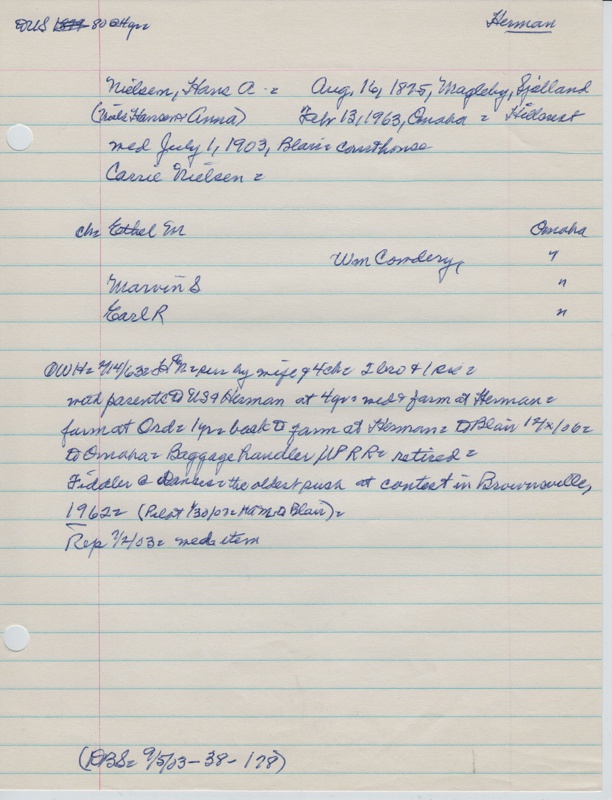 DUS 80 @ 4yr= Herman
Nielsen, Hans A = Aug, 16, 1875, Magleby, Sjelland
(Niels Hansen + Anna) Febr 13, 1963, Omaha = Hillcrest
med July 1, 1903, Blair = courthouse
Carrie Nielsen =
ch= Ethel M Omaha
Wm Comdery, "
Marvin S "
Earl R "
DWH= 2/14/63= by wife & 4ch= 2 bro & 1 sis=
with parents to US & Herman at 4yr= med & farm at Herman=
farm at Ord= 1yr= back to farm at Herman= to Blair
to Omaha= Baggage handler UPRR= retired=
Fiddler @ Dances= the oldest at contest in Brownville,
1962= (Pilot 1/30/07= @ Blair)=
Rep 7/2/03= med= item
(DBS= 9/5/23-38-178)